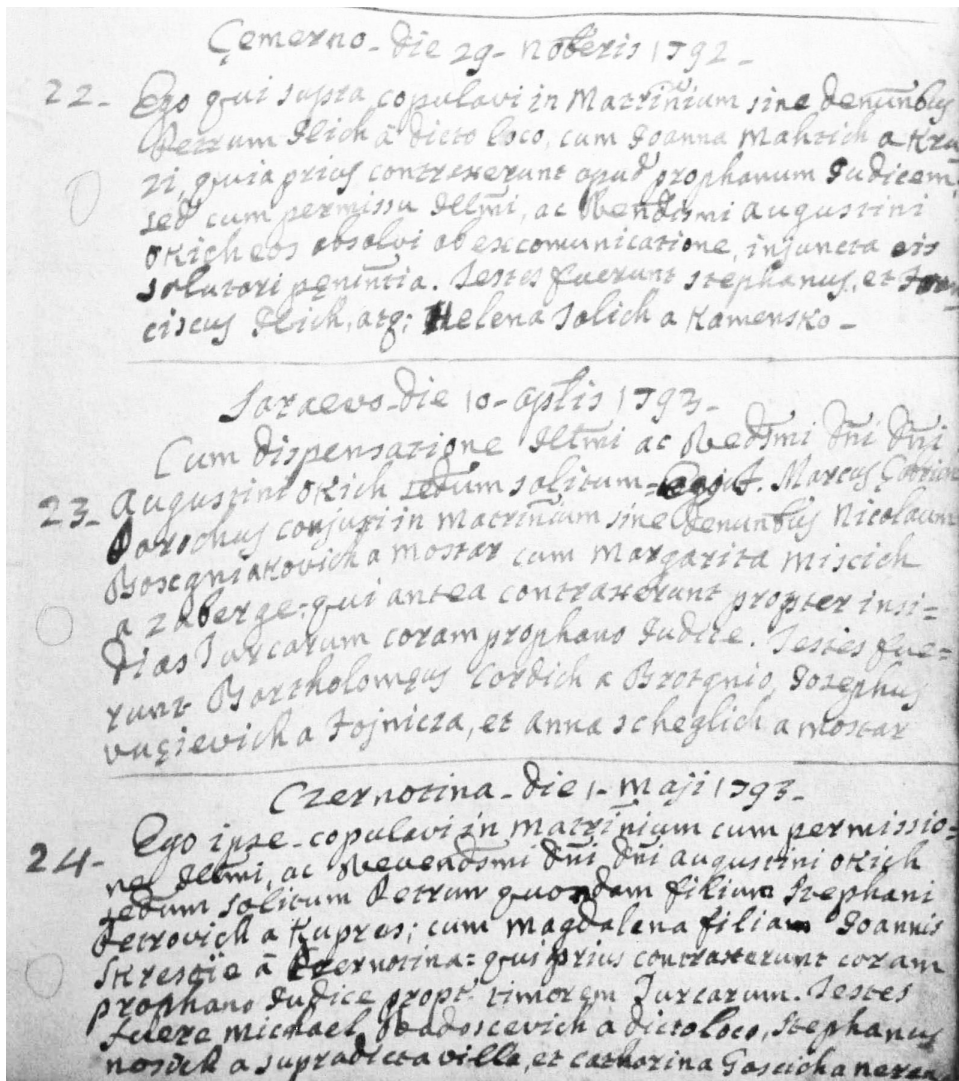 Çemerno - die 29 - Nobẽris 1792 -
22 - Ego qui supra copulavi in Matrĩnium sine denunbus
Petrum Ilich à dicto loco, cum Joanna Mahtich a
zi, quia prius contraxerunt apud prophanum Judicem
sed cum permissu Illmi, ac Rendismi Augustini
Okich eos absolvi ab excomunicatione, injuncta eis
salutari penintia. Testes fuerunt Stephanus, et Fran
ciscus Ilich, atq; Helena Solich a Kamensko -
Saraevo - die 10 - aplis 1793 -
Cum dispensatione Illmi ac Redsmi Dñi Dñi
23 - Augustini Okich sedum solitum = Ego f. Marcus
Parochus conjuxi in matriñium sine denunbus Nicolaum
Bosegniakovich a Mostar cum Margarita Miscich
a Zaberge: qui antea contraxerunt propter insi=
dias Turcarum coram prophano Judice. Testes fue=
runt Bartholomęus Cordich a Brotgnio, Josephus
Vuçievich a Fojnicza, et Anna Scheglich a Mostar
Czernotina - die 1 - Maji 1793 -
24 - Ego ipse copulavi in Matriñium cum permissio=
ne Illmi, ac Revendsmi Dñi Dñi Augustini Okich
sedum solitum Petrum quondam filium Stephani
Petrovich a Kupres; cum Magdalena filiam Joannis
à Czernotina = qui prius contraxerunt coram
prophano Judice propt timorem Turcarum. Testes
fuere Michael Radoscevich a dicto loco, Stephanus
Nosich a supradicta villa, et Catharina Goscich a